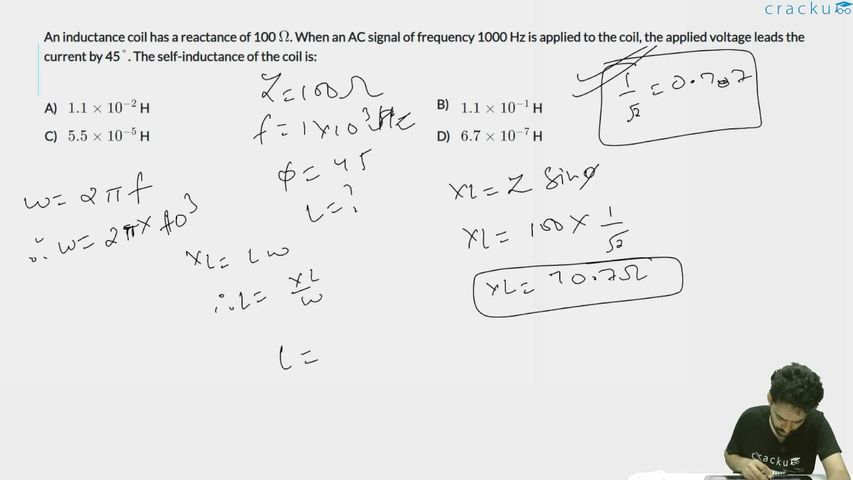 cracku
An inductance coil has a reactance of 100 Ω. When an AC signal of frequency 1000 Hz is applied to the coil, the applied voltage leads the
current by 45°. The self-inductance of the coil is:
A) 1.1 × 10⁻² H
B) 1.1 × 10⁻¹ H
C) 5.5 × 10⁻⁵ H
D) 6.7 × 10⁻⁷ H
1/√2 = 0.707
Z = 100Ω
f = 1×10³Hz
φ = 45
L = ?
ω = 2πf
∴ ω = 2π × 10³
XL = Lω
∴ L = XL/ω
L =
XL = Z sinφ
XL = 100 × 1/√2
XL = 70.7Ω
cracku